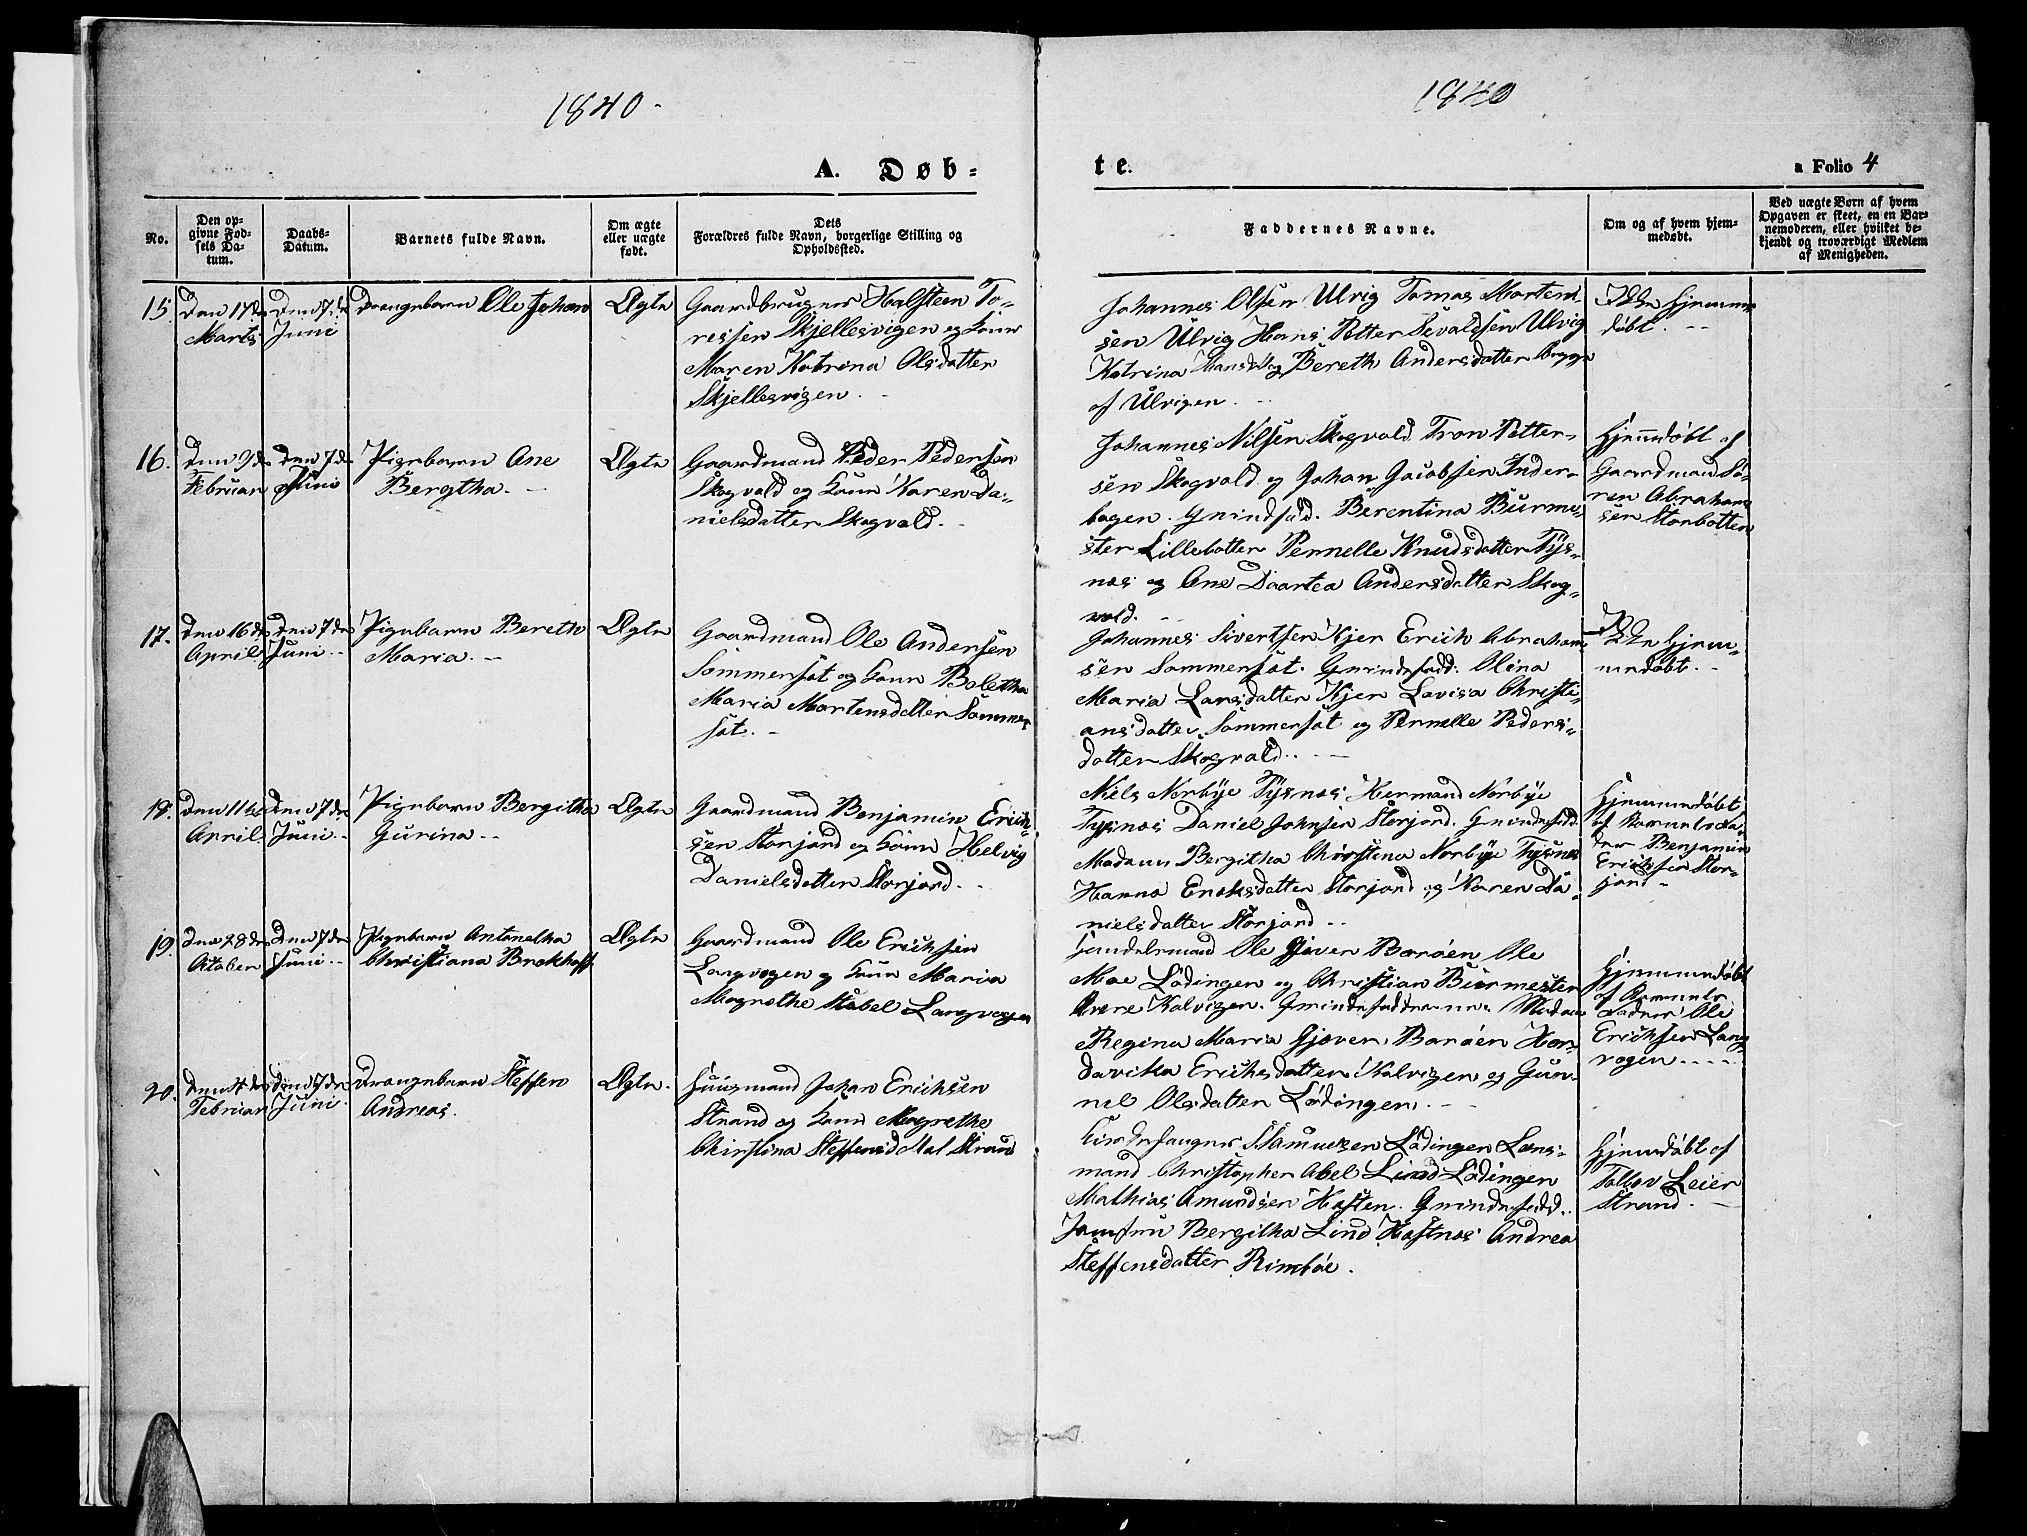 1840.
1840
A. Døb=
te.
a Folio 4
No.
Den op-
givne Fød-
sels Da-
tum.
Daabs-
Datum.
Barnets fulde Navn.
Om ægte
eller uægte
født.
Dets
Forældres fulde Navn, borgerlige Stilling og
Opholdssted.
Faddernes Navne.
Om og af hvem hjem-
medøbt.
Ved uægte Børn af hvem
Opgaven er skeet, en en Bar-
nemoderen, eller hvilket be-
kjendt og troværdigt Medlem
af Menigheden.
15.
Den 17de
Marts
Den 7de
Juni
Drengebarn Ole Johan
Ægte
Gaardbruger Halsteen To-
ressen Skjellesvigen og Kone
Maren Katrina Olsdatter
Skjellesvigen.
Johannes Olsen Ulvig Tomas Morten-
sen Ulvig Hans Petter Sivaldsen Ulvig
Katrina Hansd. og Bereth Andersdatter begge
af Ulvigen.
Ikke hjemme-
døbt.
16.
Den 9de
Februar
Den 7de
Juni
Pigebarn Ane
Bergtha.
Ægte
Gaardmand Peder Pedersen
Skogvold og Kone Karen Da-
nielsdatter Skogvold.
Johannes Nilsen Skogvold Tron Petter-
sen Skogvold og Johan Jacobsen Inder-
bogen. Qvindfad. Berentina Burme-
ster Lillebotten Pernelle Knudsdatter Tys-
næs og Ane Daartea Andersdatter Skog-
vold.
Hjemdøbt af
Gaardmand Sö-
ren Abraham
sen Storbotten
17.
Den 16de
April
Den 7de
Juni
Pigebarn Bereth
Maria.
Ægte
Gaardmand Ole Andersen
Sommersæt og Kone Boletha
Maria Martensdatter Sommer-
sæt.
Johannes Sivertsen Kjer Erick Abraham-
sen Sommersæt. Qvindefadd. Olina
Maria Larsdatter Kjer Lovisa Christi-
ansdatter Sommersæt og Pernelle Peders-
datter Skogvold.
Ikke Hjem-
medøbt.
18.
Den 11te
April
Den 7de
Juni
Pigebarn Bergitha
Gurina.
Ægte
Gaardmand Benjamin Erick-
sen Storjord og Kone Helvig
Danielsdatter Storjord.
Niels Norbye Tysnæs Hermand Norbye
Tysnæs Daniel Johnsen Storjord. Qvindefadd.
Madam Bergitha Christina Norbye Tysnæs
Hanna Ericksdatter Storjord og Karen Da-
nielsdatter Storjord.
Hjemmedøbt
af Barnets Fa-
der Benjamin
Ericksen Stor-
jord.
19.
Den 28de
Octaber
Den 7de
Juni
Pigebarn Antonetha
Christiana Brokhoff
Ægte
Gaardmand Ole Ericksen
Langvogen og Kone Maria
Magrethe Stabel Langvogen
Handelsmand Ole Gjæver Barøen Ole
Moe Lödingen og Christian Burmester
Kalvigen. Qvindefadderne: Madam
Regina Maria Gjæver Barøen
Ericksdatter Kalvigen og Gun-
nil Olsdatter Lödingen.
Hjemmedøbt
af Barnets
Fader Ole
Ericksen Lang-
vogen.
20.
Februar
Den 7de
Juni
Drengebarn Steffen
Andreas.
Ægte.
Huusmand Johan Ericksen
Strand og Kone Magrethe
Chirstina Steffensd Strand
Kirkesanger Lödingen Lens-
mand Christopher Abel Lind Lödingen
Mathias Amundsen Hæsten. Qvindefadd.
Jomfru Bergitha Lind Andrea
Steffensdatter Rinböe.
Hjemdøbt af
Leier
Strand.